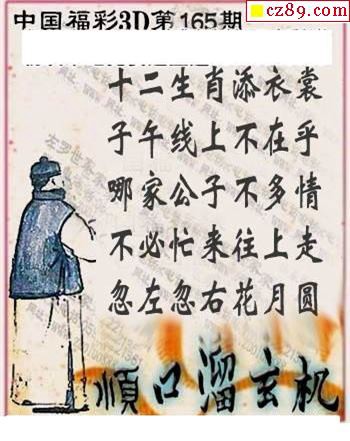 cz89.com
中国福彩3D第165期
十二生肖添衣裳
子午线上不在乎
哪家公子不多情
不必忙来往上走
忽左忽右花月圆
順口溜玄机